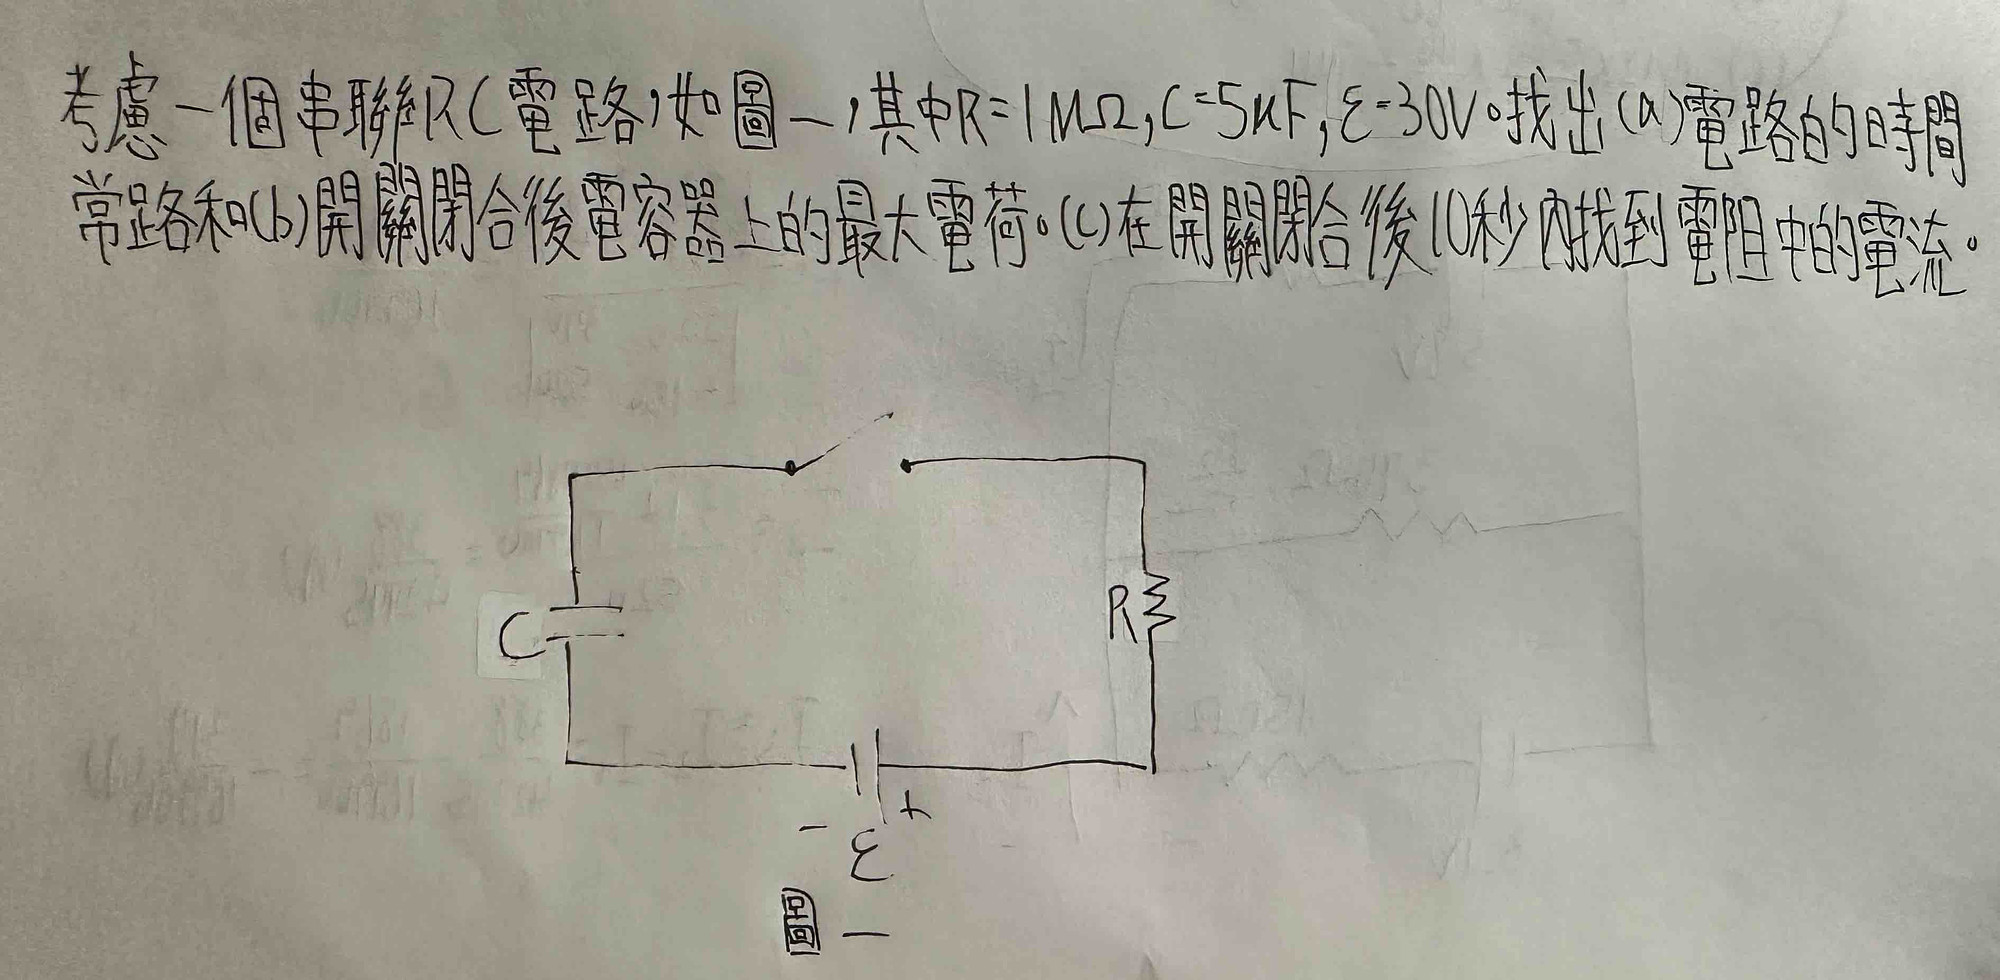 考慮一個串聯RC電路,如圖一,其中R=1MΩ,C=5μF,ε=30V。找出(a)電路的時間
常路和(b)開關閉合後電容器上的最大電荷。(c)在開關閉合後10秒內找到電阻中的電流。
C
R
- +
ε
圖一